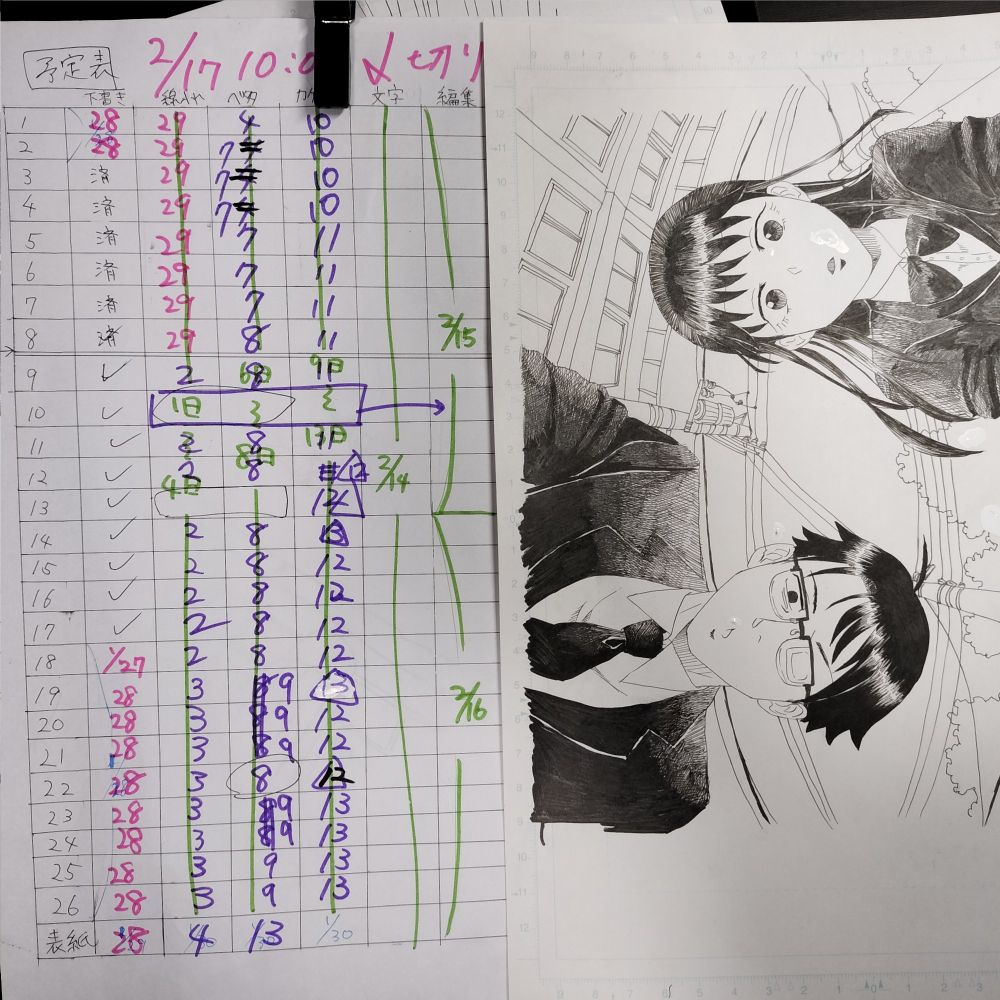 予定表 2/17 10:0 〆切り
下書き ベタ 文字 編集
1 28 29 4 10
2 28 29 7 10
3 済 29 7 10
4 済 29 7 10
5 済 29 7 11
6 済 29 7 11
7 済 29 7 11
8 済 29 8 11 2/15
9 ✓ 2 8 6日 9日
10 ✓ 1日 3 2
11 ✓ 2 8 8日 13日
12 ✓ 2 8 12 2/14
13 ✓ 4日 12
14 ✓ 2 8 13
15 ✓ 2 8 12
16 ✓ 2 8 12
17 ✓ 2 8 12
18 1/27 2 8 12
19 28 3 9 13 2/16
20 28 3 9 12
21 28 3 9 12
22 28 3 8 12
23 28 3 9 13
24 28 3 9 13
25 28 3 9 13
26 28 3 9 13
表紙 28 4 13 1/30